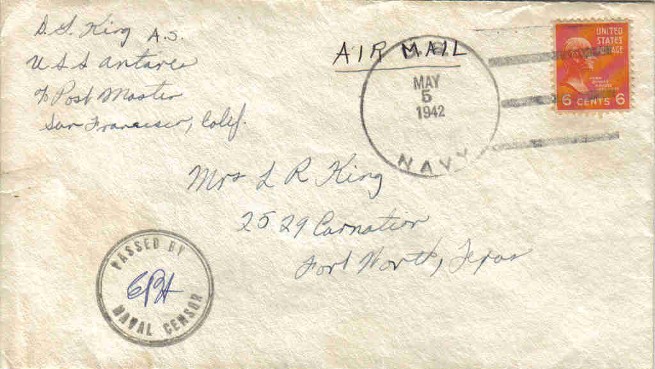 D. S. King A.S.
USS Antares
% Post Master
San Francisco, Calif.
AIR MAIL
U.S.
MAY
5
1942
NAVY
UNITED
STATES
POSTAGE
6 CENTS 6
Mrs L R King
2529 Carnation
Fort Worth, Texas
PASSED BY
NAVAL CENSOR